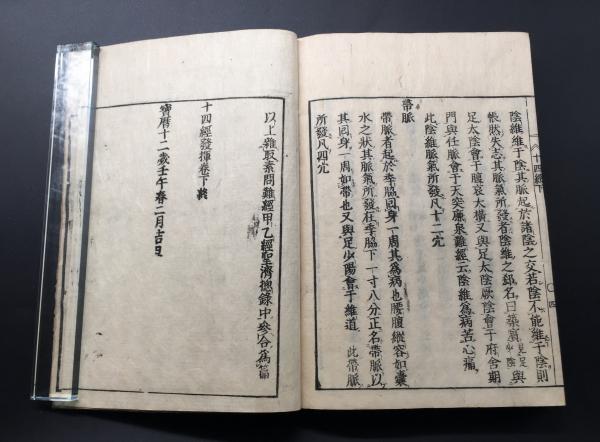 陰維維于陰其脈起於諸陰之交若陰不能維于陰則
悵然失志其脈氣所發者陰維之郄名曰築賓見足少陰與
足太陰會于腹哀大橫又與足太陰厥陰會于府舍期
門與任脈會于天突廉泉難經云陰維爲病苦心痛
此陰維脈氣所發凡十二穴
帶脈
帶脈者起於季脇回身一周其爲病也腰腹縱容如囊
水之狀其脈氣所發在季脇下一寸八分正名帶脈以
其回身一周如帶也又與足少陽會于維道 此帶脈
所發凡四穴
十四經下
四
以上雜取素問難經甲乙經聖濟總錄中參合爲篇
十四經發揮卷下終
寶曆十二歲壬午春二月吉日